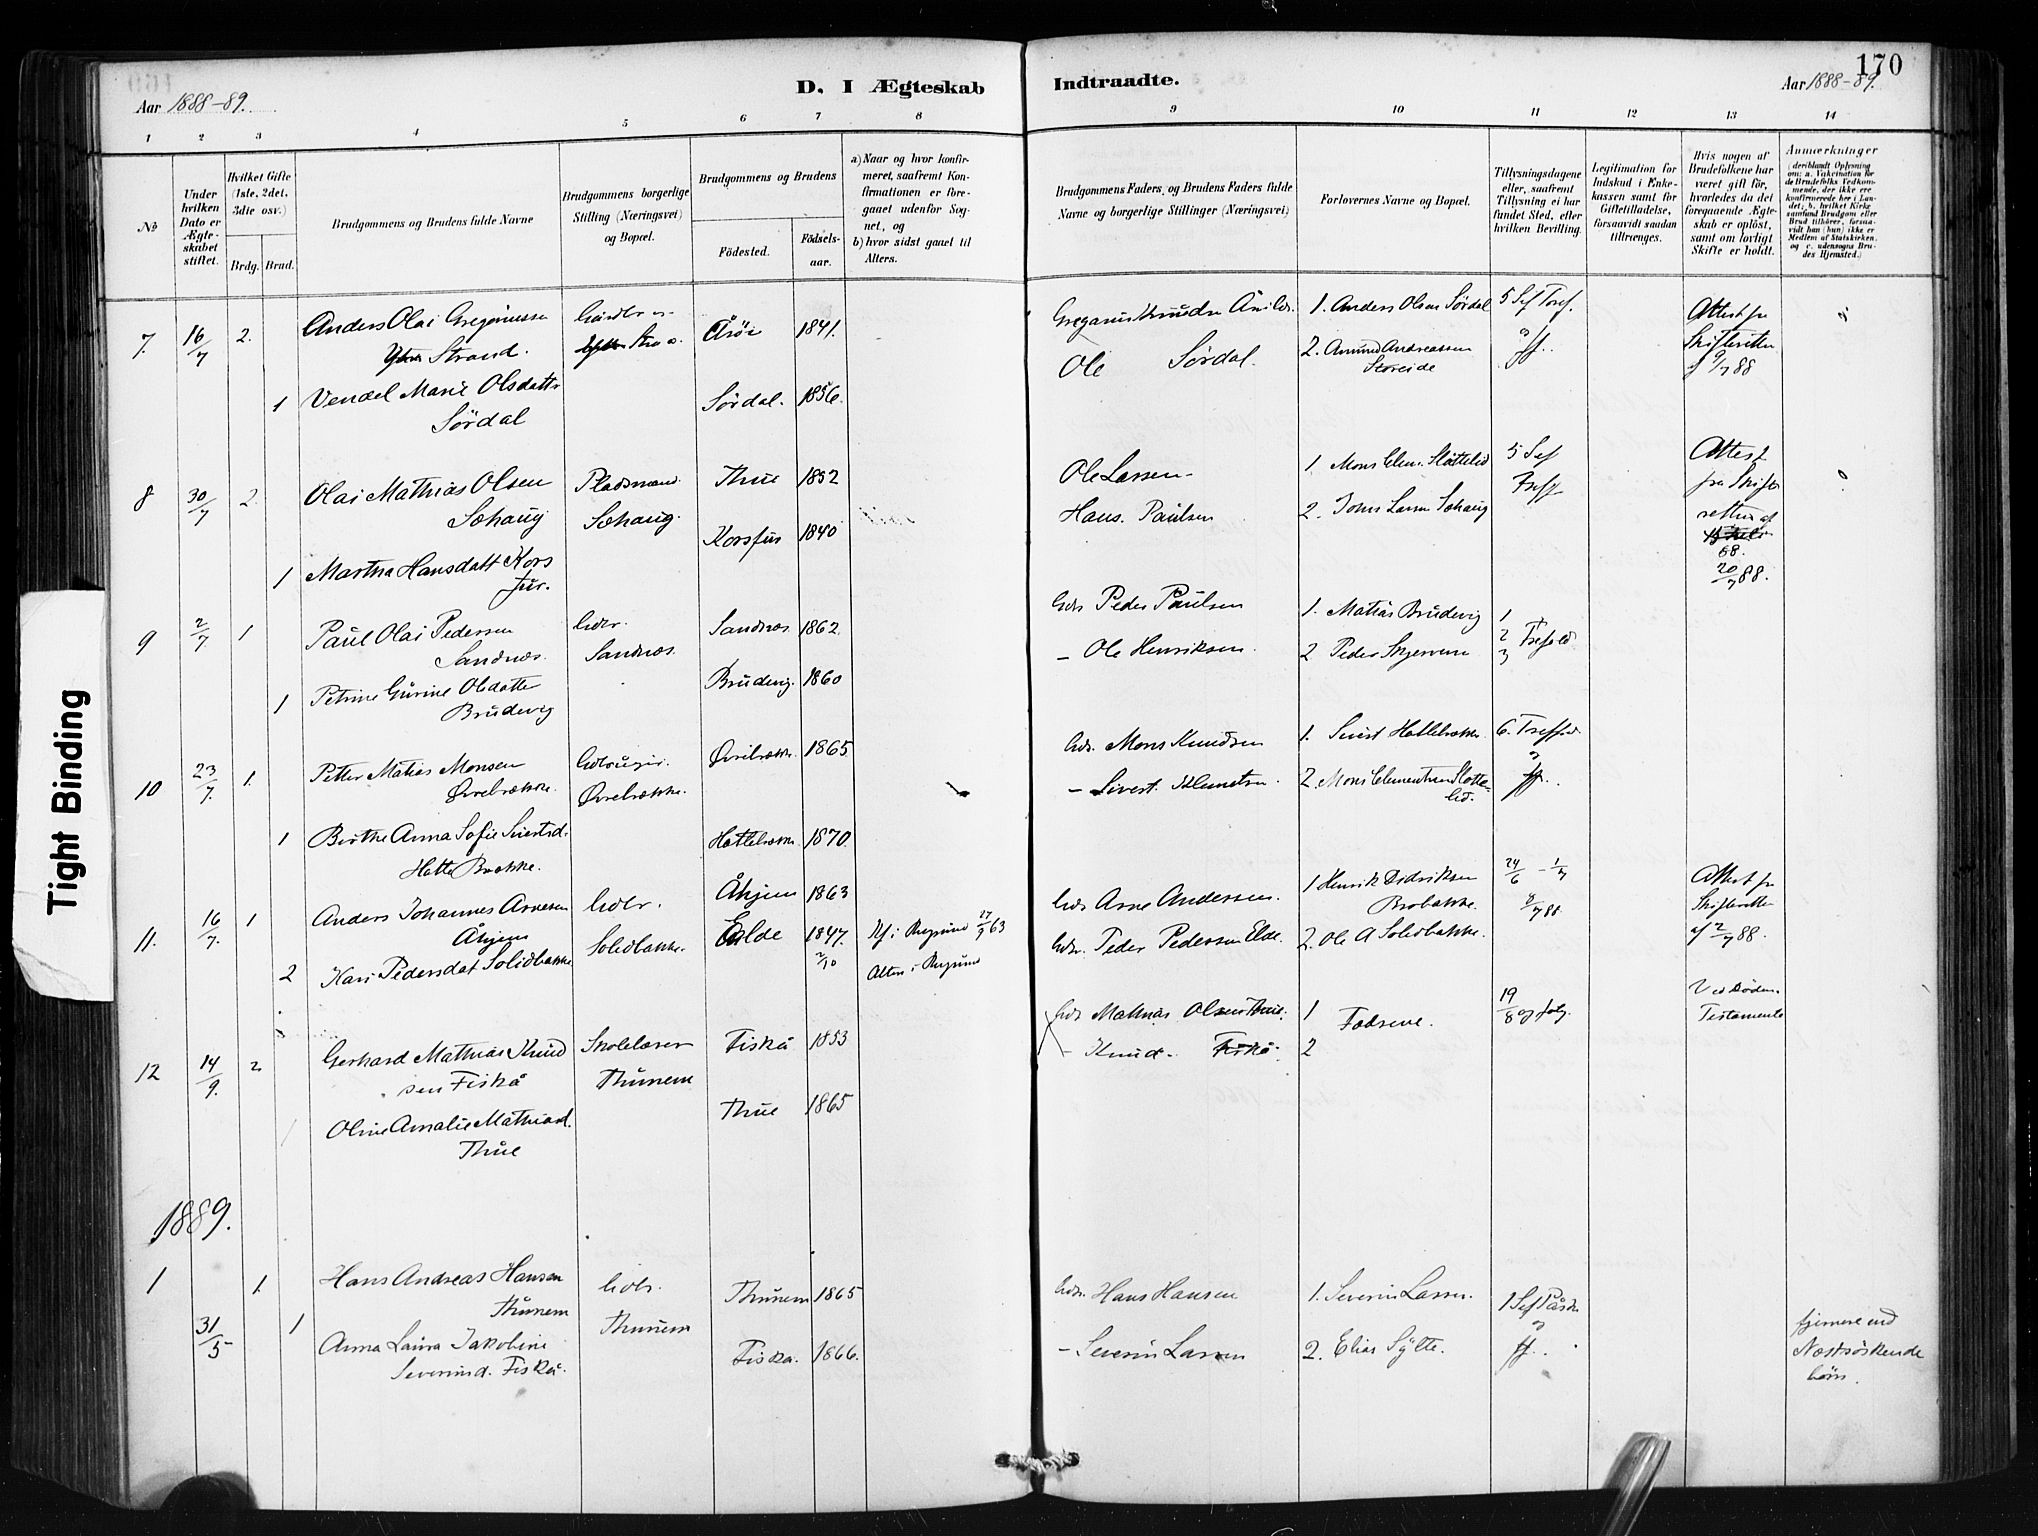 170
Aar 1888-89.
D. I Ægteskab
Indtraadte.
Aar 1888-89.
1 2 3 4 5 6 7 8 9 10 11 12 13 14
No
Under hvilken Dato er Ægteskabet stiftet.
Hvilket Gifte (1ste, 2det, 3die osv.)
Brdg. Brud.
Brudgommens og Brudens fulde Navne
Brudgommens borgerlige Stilling (Næringsvei) og Bopæl.
Brudgommens og Brudens
Födested.
Födsels-aar.
a) Naar og hvor konfirmeret, saafremt Konfirmationen er foregaaet udenfor Sognet, og
b) hvor sidst gaaet til Alters.
Brudgommens Faders, og Brudens Faders fulde Navne og borgerlige Stillinger (Næringsvei)
Forlovernes Navne og Bopæl.
Tillysningsdagene eller, saafremt Tillysning ei har fundet Sted, efter hvilken Bevilling.
Legitimation for Indskud i Enkekassen samt for Giftetilladelse, forsaavidt saadan tiltrænges.
Hvis nogen af Brudefolkene har været gift för, hvorledes da det foregaaende Ægteskab er oplöst, samt om lovligt Skifte er holdt.
Anmærkninger
(deriblandt Oplysning om: a. Vakcination for de Brudefolks Vedkommende, der ikke ere konfirmerede her i Landet; b. hvilket Kirkesamfund Brudgom eller Brud tilhörer, forsavidt han (hun) ikke er Medlem af Statskirken, og c. udensogns Brudes Hjemsted.)
7. 16/7 2.
Anders Olai Gregoriussen
Strand.
Åröe 1841.
1. Anders Olsen Sördal
1 Vendel Marie Olsdatter
Sördal
Sördal. 1856.
Ole Sördal.
2. Amund Andreassen
Storeide
Attest fra
Skifteretten
88
8 30/7 2.
Olai Mathias Olsen
Sæhaug
Pladsmand
Sæhaug
Thue 1852
Ole Larsen
1. Mons Clem. Slottelid
1 Martha Hansdatt Kors
fur.
Korsfur 1840
Hans. Paulsen
2. Johs Larsen Sæhaug
Attest
fra Skifte
retten af
88.
20/7 88.
9 2/7 1
Paul Olai Pedersen
Sandnæs.
Gdbr.
Sandnæs.
Sandnæs 1862.
Gdr Peder Paulsen
1. Matias Brudevig
1 Petrine Gurine Olsdatter
Brudevig
Brudevig. 1860
- Ole Henriksen.
2 Peder Skjervene
1
2
3
10 23/7. 1.
Petter Matias Monsen
Övrebrække.
Övrebrække.
Övrebrække. 1865
Gdr. Mons Knudsen
1. Sivert Hattebrække
1 Birthe Anna Sofie Sivertsd.
Hatte Brække.
Hattebrække. 1870.
- Sivert. Klemetsen.
2. Mons Clementsen Slotte-
lid.
11. 16/7. 1
Anders Johannes Arnesen
Åhjem
Gdbr.
Solidbakke.
Åhjem 1863
Gdr Arne Andersen.
1 Henrik Didriksen
Brobakke.
24/6 - 1/7
8/7 88
2 Kari Pedersdat Solidbakke
Elde 1847.
2/10
27/9 63
Gdr. Peder Pedersen Elde.
2. Ole A Solidbakke.
Attest fra
Skifteretten
af 2/7 88.
12 14/9. 2
Gerhard Mathias Knud
sen Fiskå
Skolelærer
Thunem
Fiskå 1853
Gdr Mathias Olsen Thue.
1
Fædrene.
19/8 og følg.
Ved Döden.
Testamente
Oline Amalie Mathiasd.
Thue
Thue 1865
- Knud. Fiskå.
2
1889.
1 31/5 1.
Hans Andreas Hansen
Thunem
Gdbr.
Thunem
Thunem 1865
Gdr. Hans Hansen
1. Severin Larsen.
1 Anna Laura Jakobine
Severind. Fiskå.
Fiskå. 1866.
- Severin Larsen
2. Elias Sylte.
fjernere end
Næstsöskende
börn.
Tight Binding